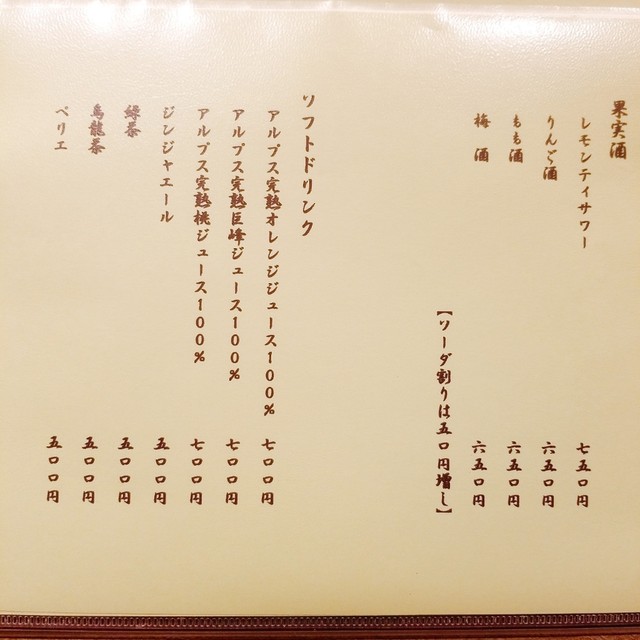 果実酒
レモンティサワー 七五〇円
りんご酒 六五〇円
もも酒 六五〇円
梅酒 六五〇円
【ソーダ割りは五〇円増し】
ソフトドリンク
アルプス完熟オレンジジュース100% 七〇〇円
アルプス完熟巨峰ジュース100% 七〇〇円
アルプス完熟桃ジュース100% 七〇〇円
ジンジャエール 五〇〇円
緑茶 五〇〇円
烏龍茶 五〇〇円
ペリエ 五〇〇円